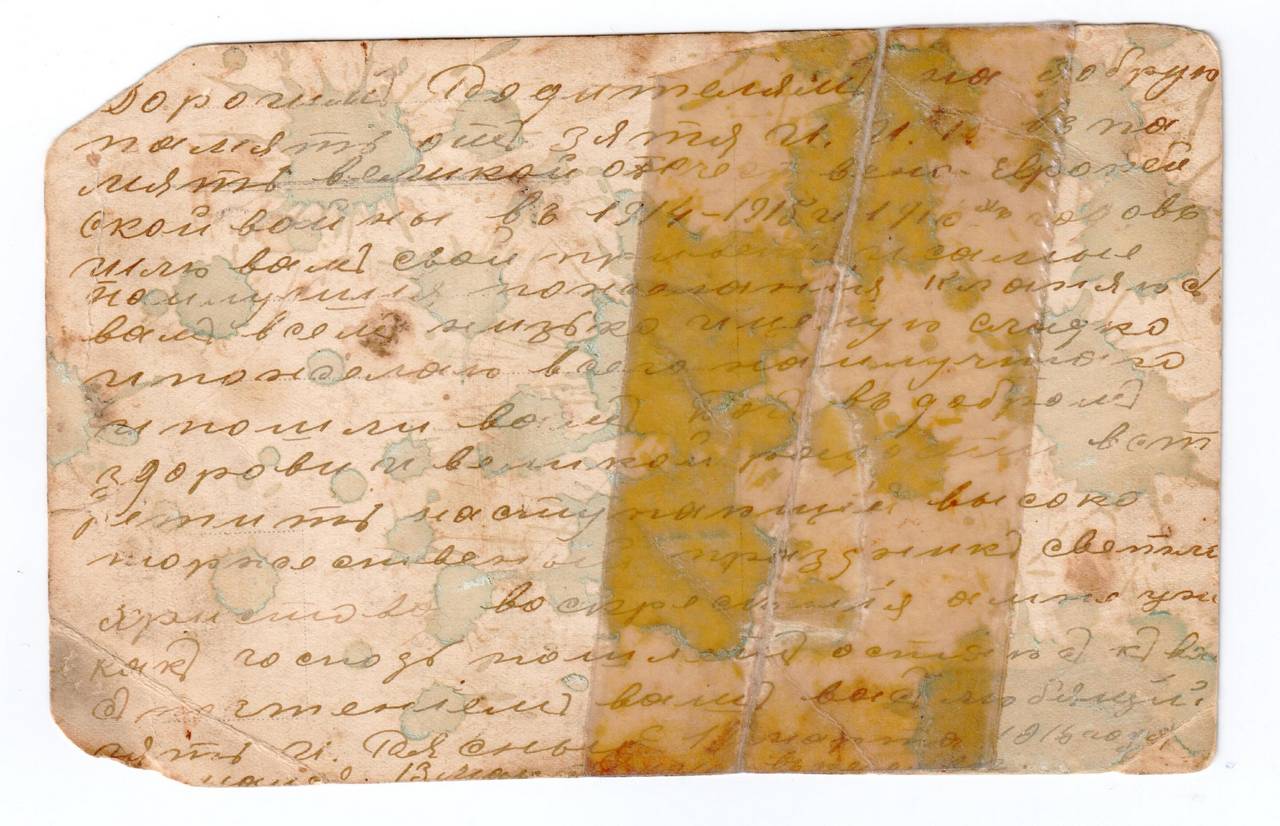 Дорогимъ Родителямъ на добрую
память отъ зятя И. И. П. въ па
мять великой отечест вено-Европей
ской войны въ 1914-1915 и 1916 годовъ
шлю вамъ свой приветъ и самые
наилучшия пожелания Кланяюсь
вамъ всемъ низько и целую сладко
и пожелаю всего наилучшаго
и пошли вамъ Богъ въ добромъ
здорови и великой радости вст
ретить наступающий высоко
торжественый праздникъ светлаго
христова воскресения а мне уже
какъ господь пошлетъ остаюсь къ ва
съ почтениемъ вашъ васъ любящий
зять И. 1916 года